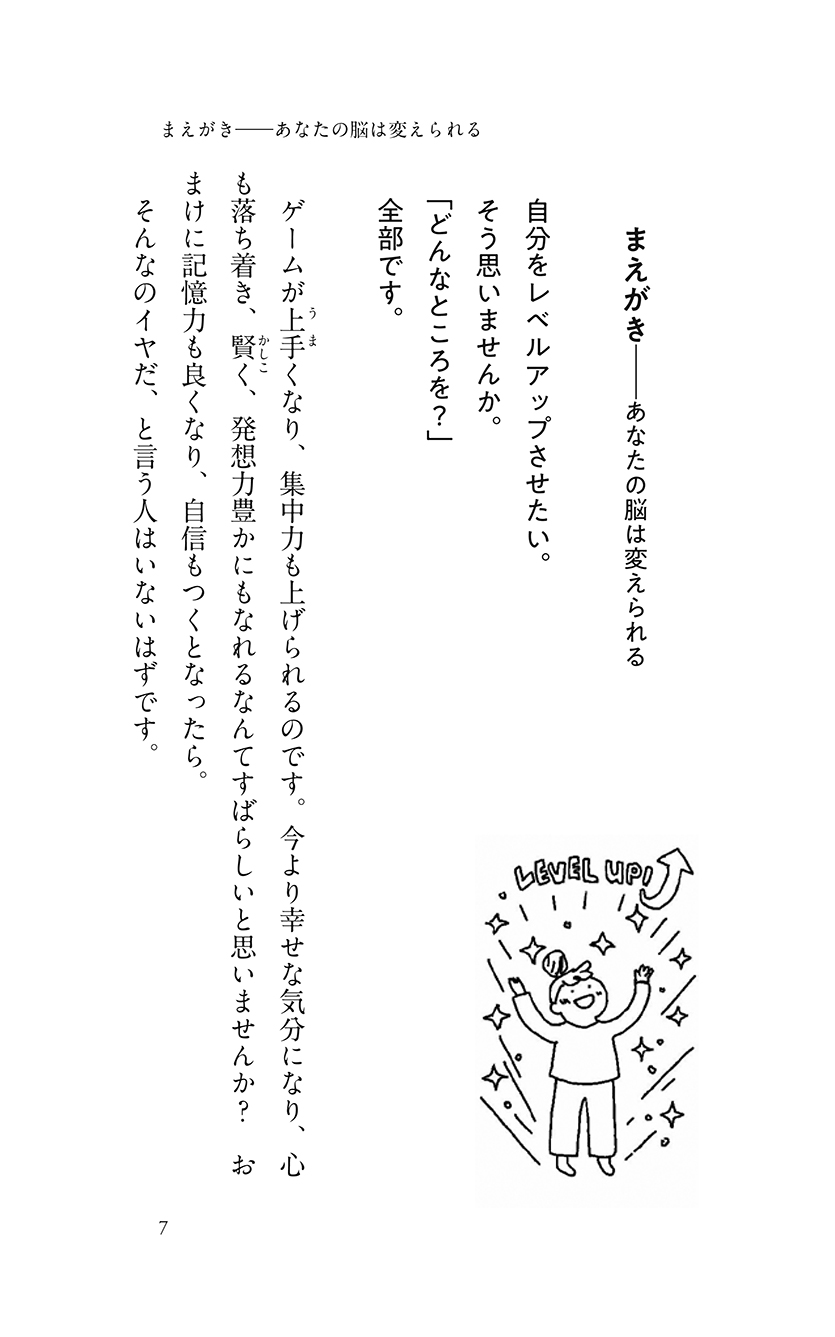 まえがき――あなたの脳は変えられる
まえがき――あなたの脳は変えられる
自分をレベルアップさせたい。
そう思いませんか。
「どんなところを？」
全部です。
ゲームが上手くなり、集中力も上げられるのです。今より幸せな気分になり、心
も落ち着き、賢く、発想力豊かにもなれるなんてすばらしいと思いませんか？　お
まけに記憶力も良くなり、自信もつくとなったら。
そんなのイヤだ、と言う人はいないはずです。
うま
かしこ
LEVEL UP!
7